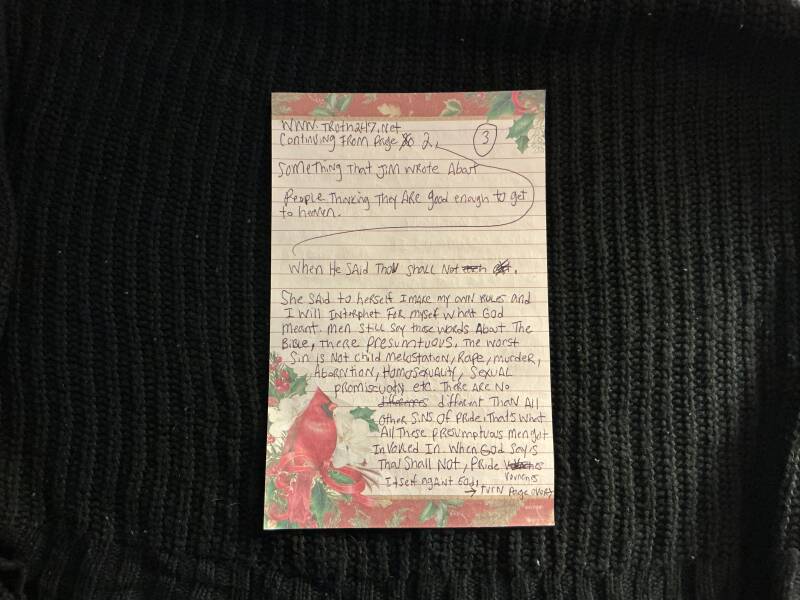 WWW.Troth247.Net
Continuing From Page 2. 3
Something That Jim Wrote About
People Thinking They Are good enough to get
to heaven.
When He Said Thou Shall Not
She Said to herself I make my own Rules and
I will Interphet For myself what God
meant. men Still Say those words About The
Bible, There Presumtuous. The worst
Sin is Not Child Melostation, Rape, murder,
Aborntion, Homosexuality, Sexual
promiscuoty etc. There Are No
differences different Than All
other Sins of Pride. That's What
All These Presumptuos men get
Involed In. When God Says
Thou Shall Not, Pride
Itself
→ Turn Page over